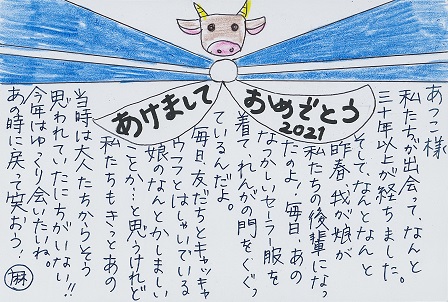 あけまして
おめでとう
2021
あつこ様
私たちが出会って、なんと
三十年以上が経ちました。
そして、なんとなんと
昨春、我が娘が
私たちの後輩になっ
たのよ!毎日、あの
なつかしいセーラー服を
着て、れんがの門をくぐっ
ているんだよ。
毎日、友だちとキャッキャ
ウフフとはしゃいでいる
娘のなんとかしましい
ことか…と思うけれど
私たちもきっとあの
当時は大人たちからそう
思われていたにちがいない!!
今年はゆっくり会いたいね。
あの時に戻って笑おう!
麻